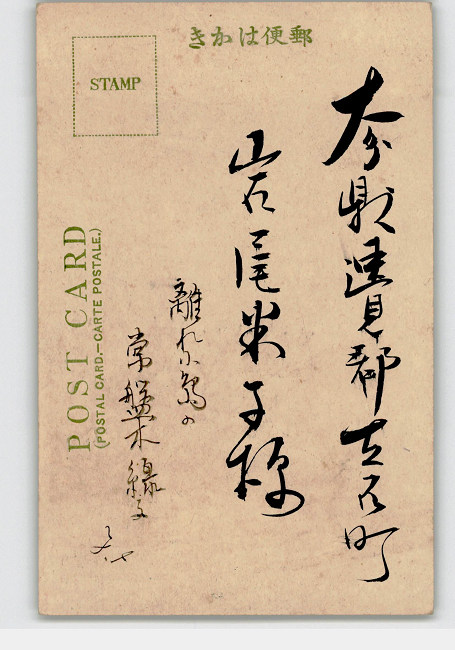 郵便はかき
STAMP
大分県速見郡立石町
岩尾米子様
離れ島の
常盤木緑
より
POST CARD
(POSTAL CARD.—CARTE POSTALE.)